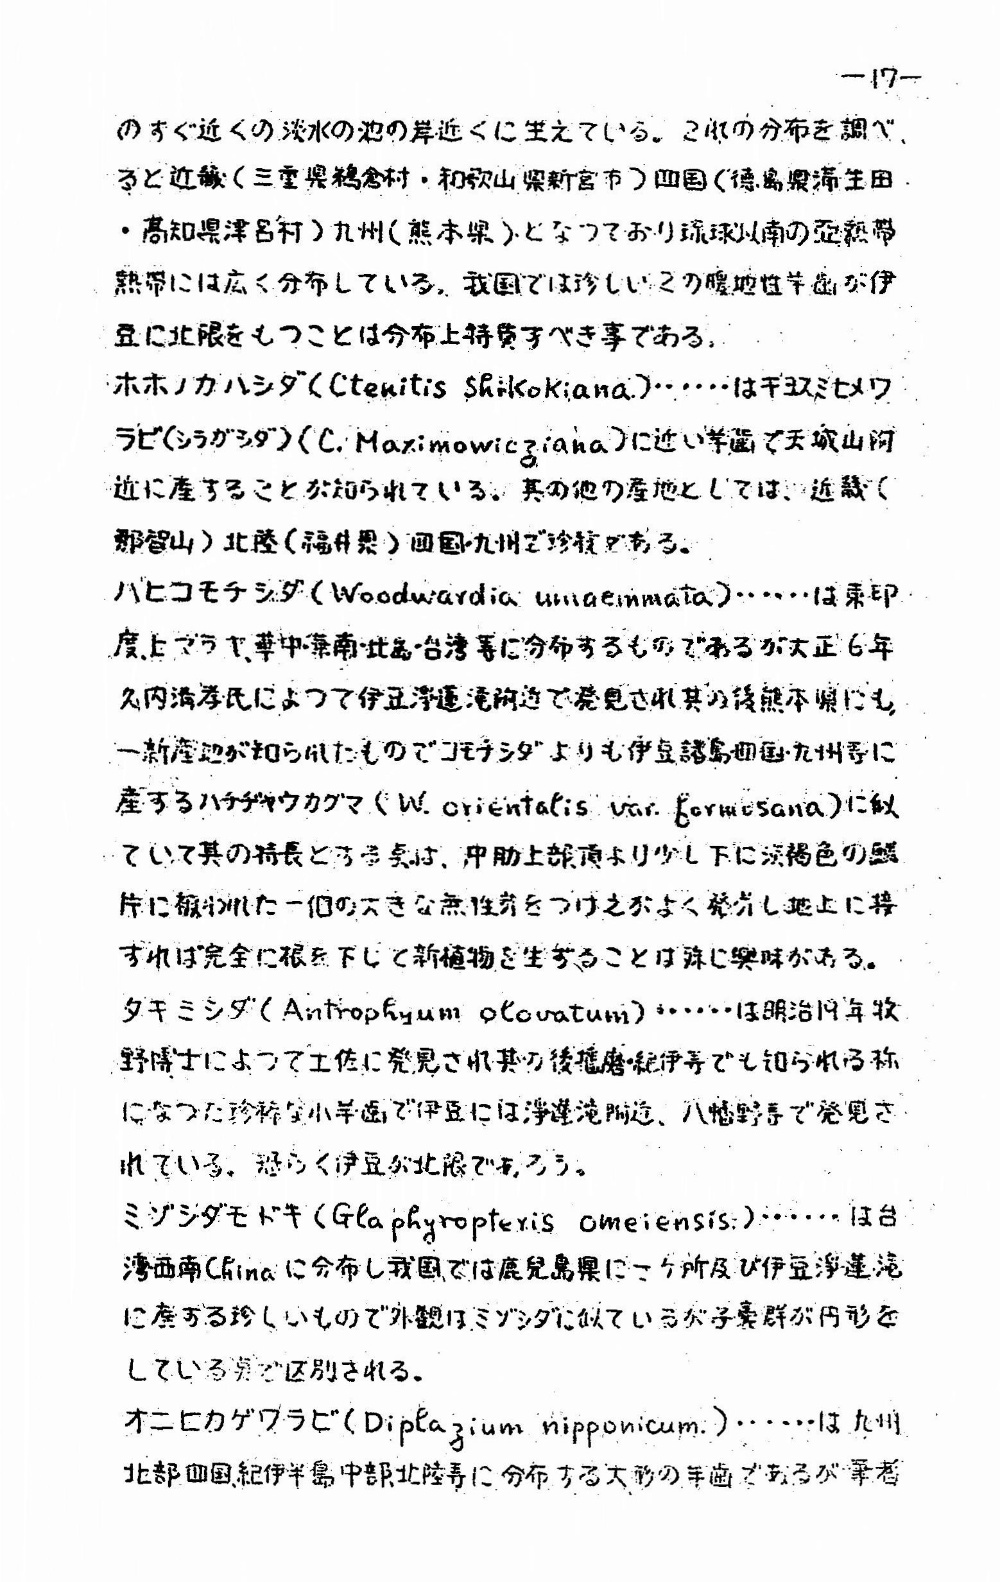 —17—
のすぐ近くの淡水の池の岸近くに生えている。これの分布を調べ
ると近畿(三重県鵜倉村・和歌山県新宮市)四国(徳島県蒲生田
・高知県津呂村)九州(熊本県)となつており琉球以南の亞熱帯
熱帯には広く分布している。我国では珍しいこの暖地性羊歯が伊
豆に北限をもつことは分布上特筆すべき事である。
ホホノカハシダ(Ctenitis Shikokiana.)・・・・・・はキヨスミヒメワ
ラビ(シラガシダ)(C. Maximowicziana)に近い羊歯で天城山附
近に産することが知られている。其の他の産地としては、近畿(
那智山)北陸(福井県)四国・九州で珍種である。
ハヒコモチシダ(Woodwardia unigemmata)・・・・・・は東印
度、ヒマラヤ、華中・華南・比島・台湾等に分布するものであるが大正6年
久内清孝氏によつて伊豆浄蓮滝附近で発見され其の後熊本県にも
一新産地が知られたものでコモチシダよりも伊豆諸島四国・九州等に
産するハチヂヤウカグマ(W. orientalis var. formosana)に似
ていて其の特長とする点は、中肋上部頂より少し下に淡褐色の鱗
片に被われた一個の大きな無性芽をつけ之がよく発芽し地上に接
すれば完全に根を下して新植物を生ずることは殊に興味がある。
タキミシダ(Antrophyum obovatum)・・・・・・は明治19年牧
野博士によつて土佐に発見され其の後播磨・紀伊等でも知られる様
になつた珍稀な小羊歯で伊豆には浄蓮滝附近、八幡野等で発見さ
れている。恐らく伊豆が北限であろう。
ミゾシダモドキ(Glaphyropteris omeiensis.)・・・・・・は台
湾西南Chinaに分布し我国では鹿児島県に一ケ所及び伊豆浄蓮滝
に産する珍しいもので外観はミゾシダに似ているが子嚢群が円形を
している点で区別される。
オニヒカゲワラビ(Diplazium nipponicum.)・・・・・・は九州
北部四国、紀伊半島中部、北陸等に分布する大形の羊歯であるが筆者